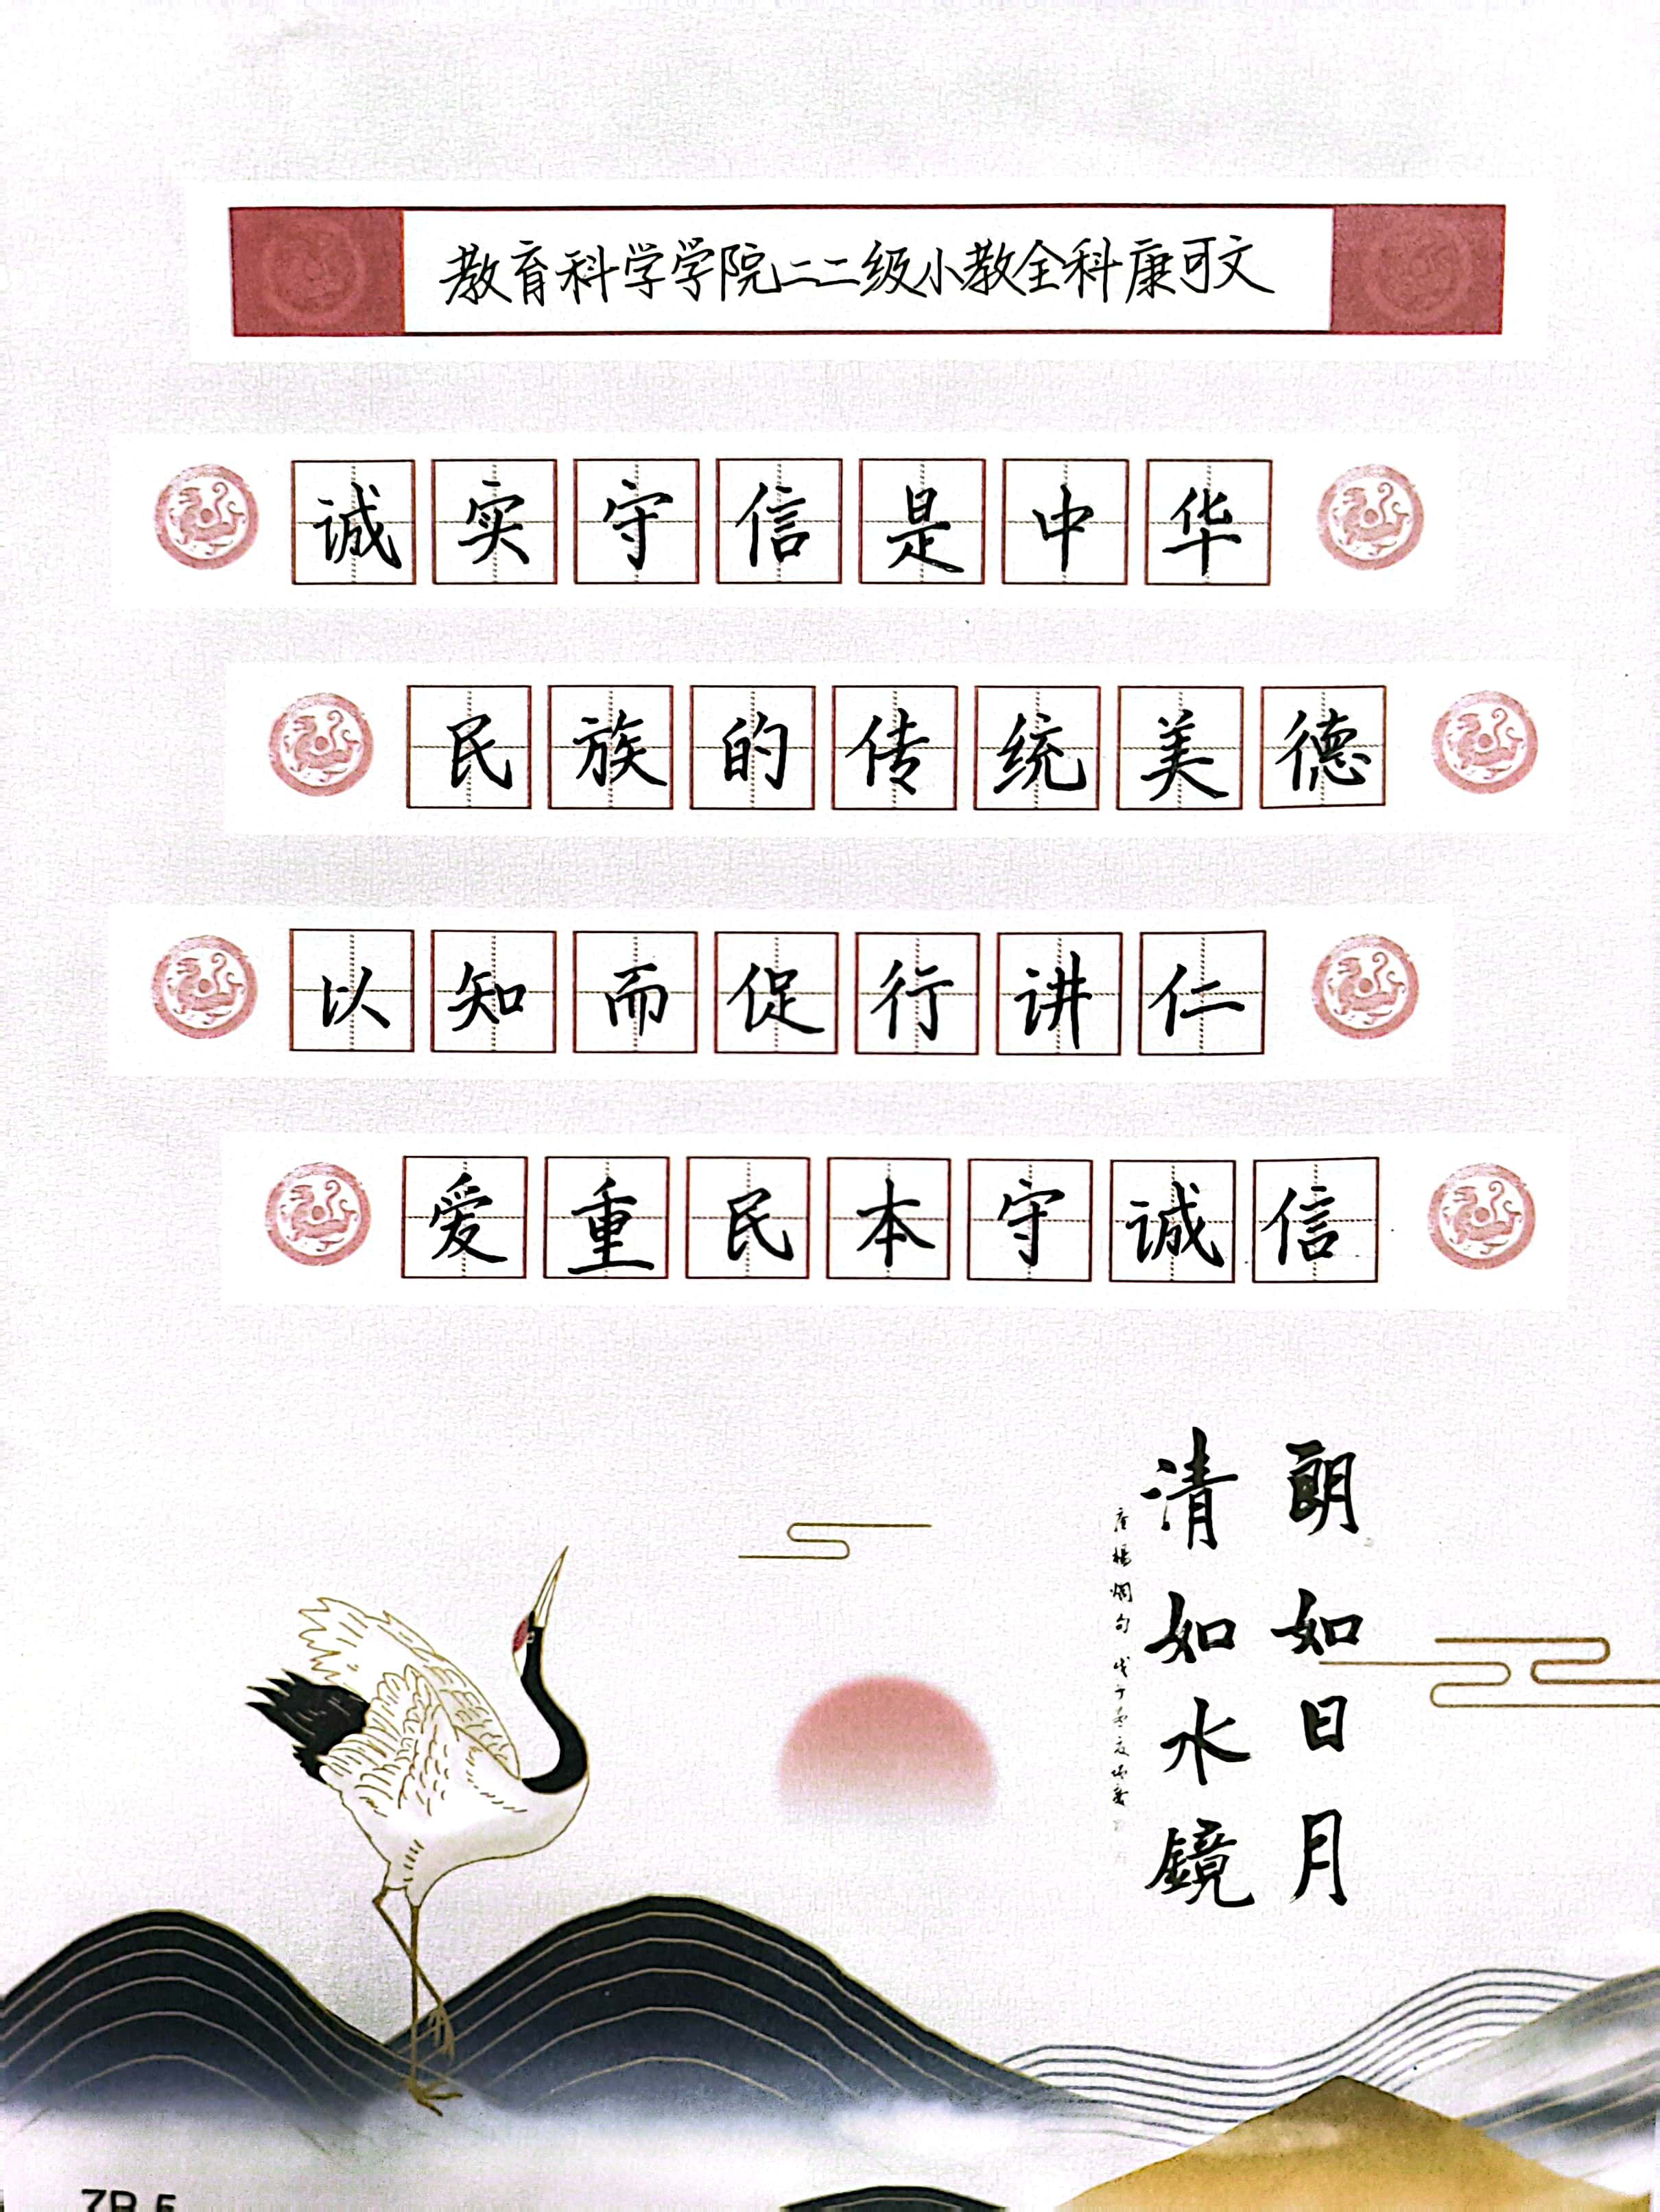 教育科学学院二二级小教全科康可文
诚实守信是中华
民族的传统美德
以知而促行讲仁
爱重民本守诚信
朗如日月
清如水镜
唐杨炯句
ZR.5